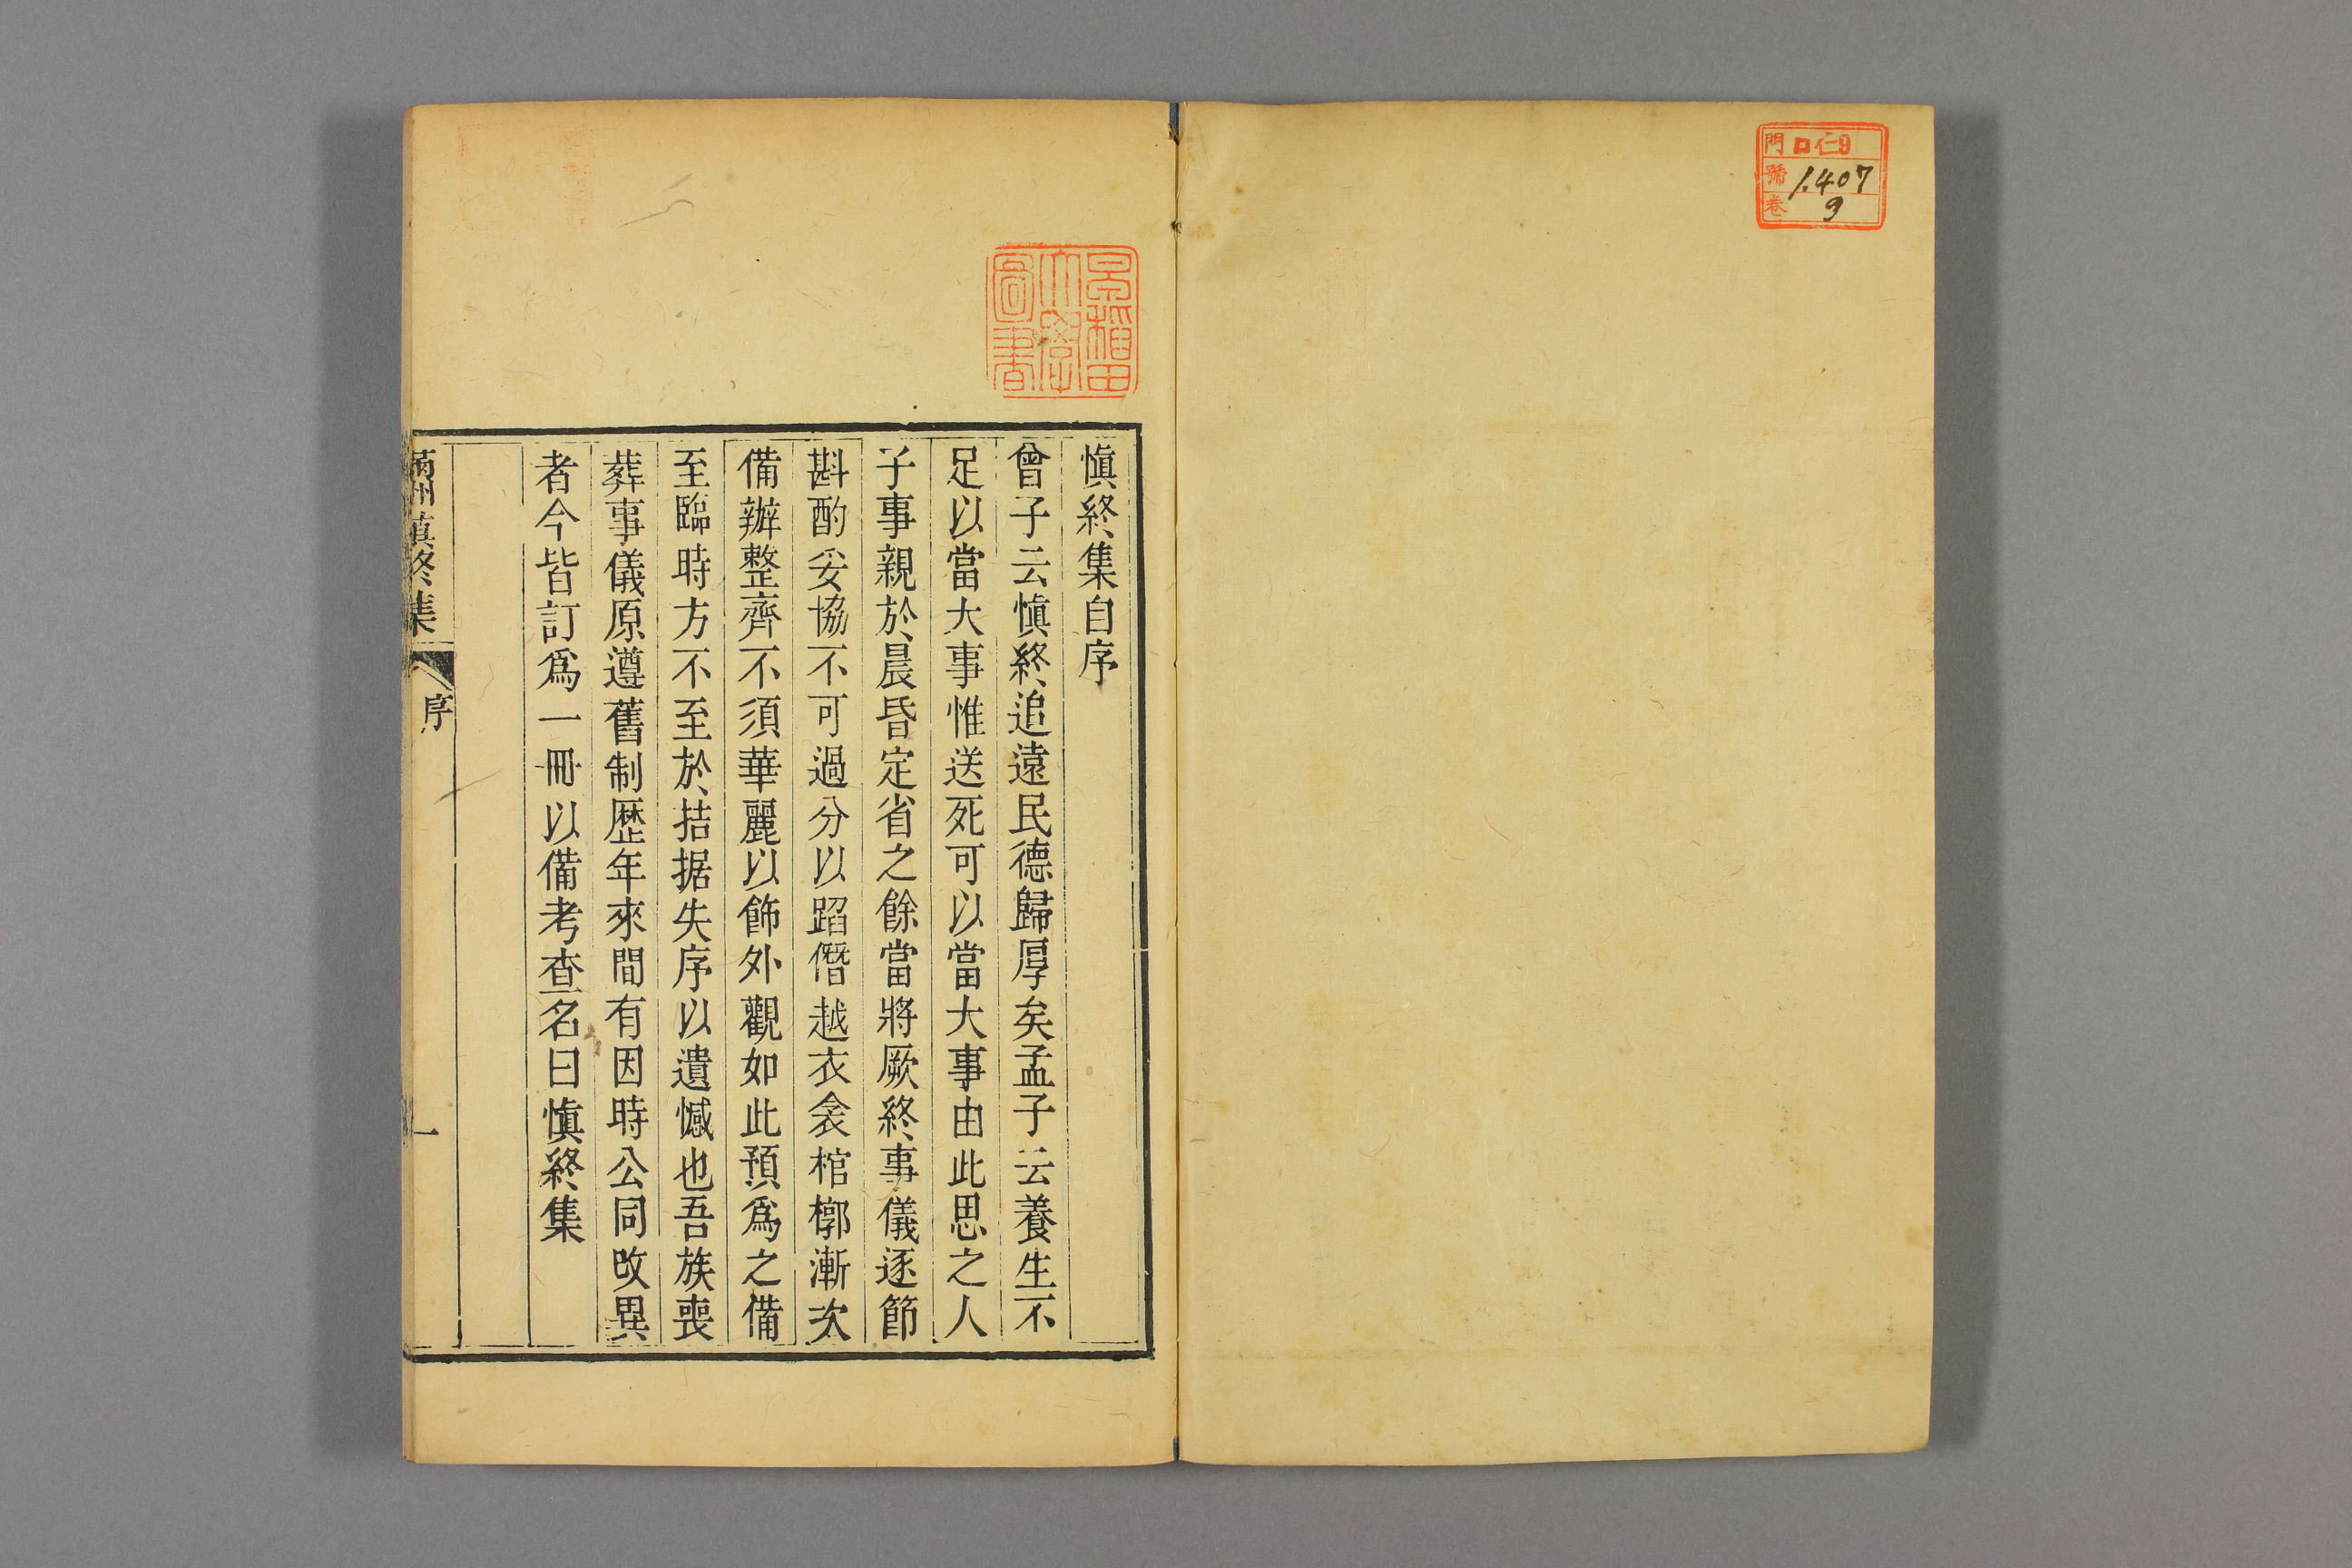 門 ロ仁9
號 1.407
卷 9
早稲田大學圖書
慎終集自序
曾子云慎終追遠民德歸厚矣孟子云養生不
足以當大事惟送死可以當大事由此思之人
子事親於晨昏定省之餘當將厥終事儀逐節
斟酌妥協不可過分以蹈僭越衣衾棺槨漸次
備辦整齊不須華麗以飾外觀如此預爲之備
至臨時方不至於拮据失序以遺憾也吾族喪
葬事儀原遵舊制歷年來間有因時公同改異
者今皆訂爲一冊以備考查名曰慎終集
滿洲慎終集 序 一